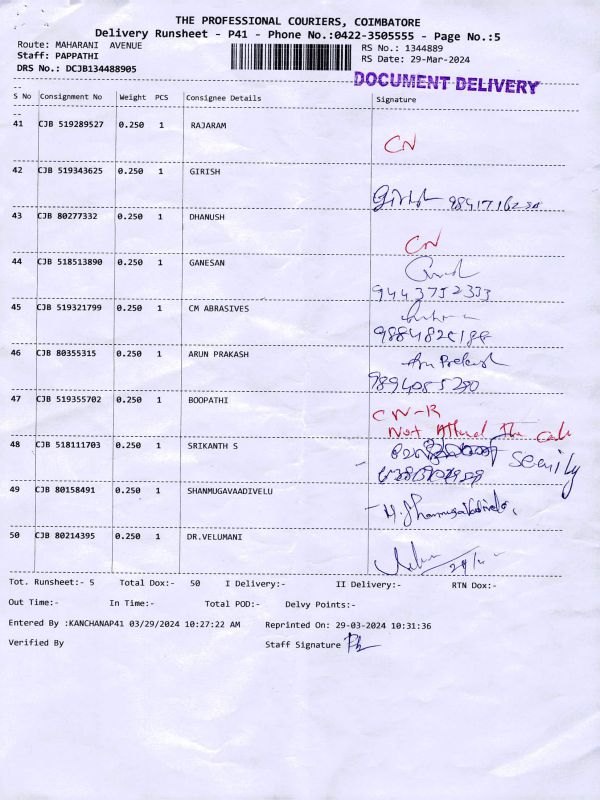 THE PROFESSIONAL COURIERS, COIMBATORE
Delivery Runsheet - P41 - Phone No.:0422-3505555 - Page No.:5
Route: MAHARANI AVENUE
RS No.: 1344889
Staff: PAPPATHI
RS Date: 29-Mar-2024
DRS No.: DCJB134488905
DOCUMENT DELIVERY
S No Consignment No Weight PCS Consignee Details Signature
41 CJB 519289527 0.250 1 RAJARAM
CN
42 CJB 519343625 0.250 1 GIRISH
Girish
43 CJB 80277332 0.250 1 DHANUSH
CN
44 CJB 518513890 0.250 1 GANESAN
9443752333
45 CJB 519321799 0.250 1 CM ABRASIVES
46 CJB 80355315 0.250 1 ARUN PRAKASH
Arun Prakash
9894085280
47 CJB 519355702 0.250 1 BOOPATHI
CN-R
Not Attend The call
48 CJB 518111703 0.250 1 SRIKANTH S
49 CJB 80158491 0.250 1 SHANMUGAVAADIVELU
50 CJB 80214395 0.250 1 DR.VELUMANI
Tot. Runsheet:- 5 Total Dox:- 50 I Delivery:- II Delivery:- RTN Dox:-
Out Time:- In Time:- Total POD:- Delvy Points:-
Entered By :KANCHANAP41 03/29/2024 10:27:22 AM Reprinted On: 29-03-2024 10:31:36
Verified By Staff Signature